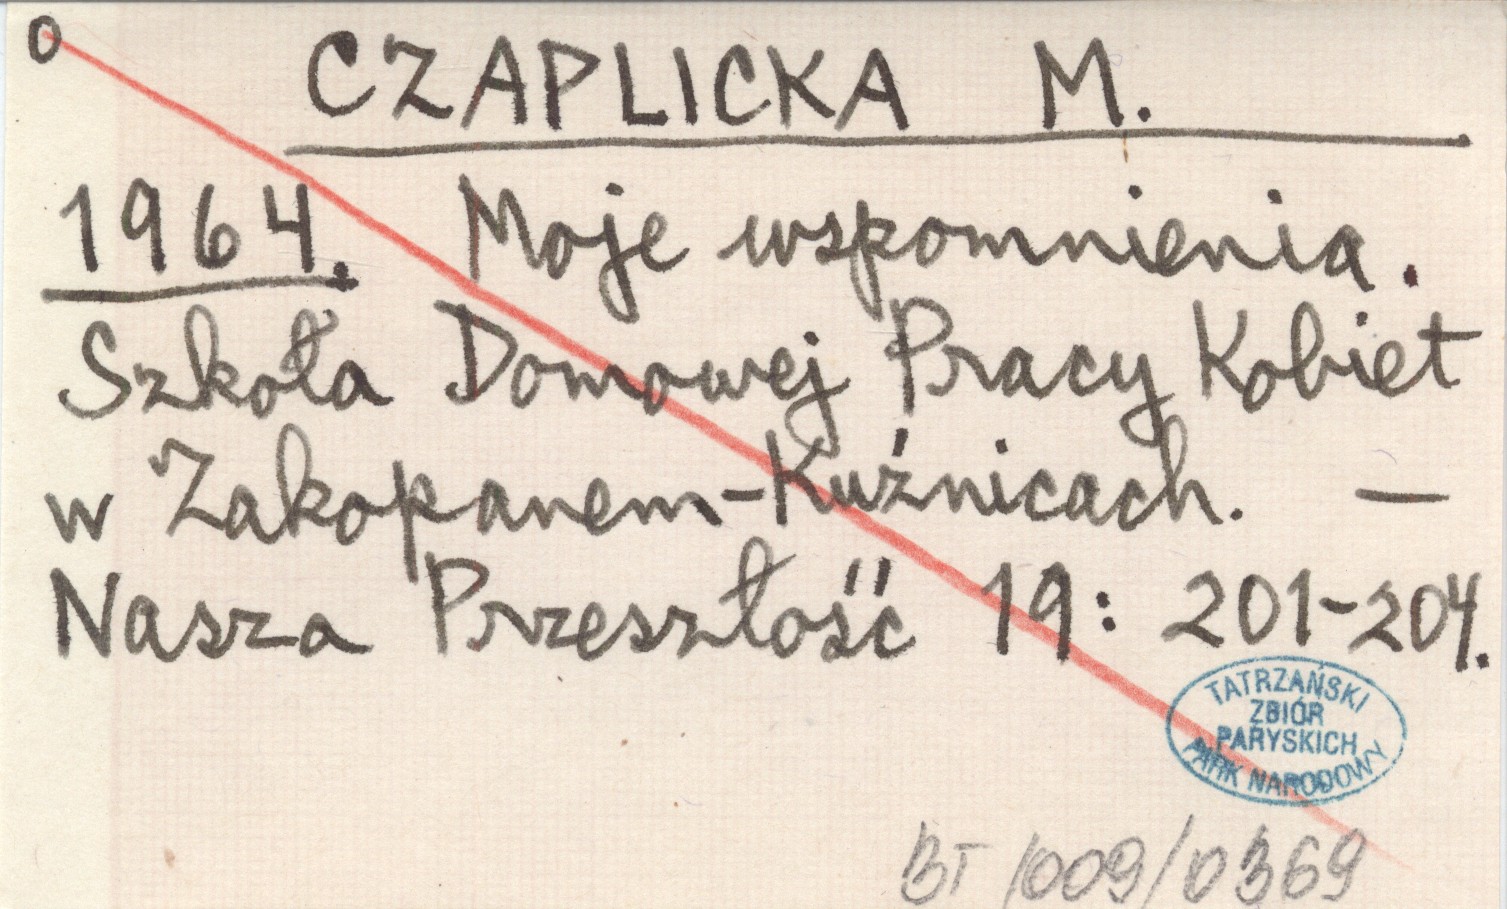 o
CZAPLICKA M.
1964. Moje wspomnienia.
Szkoła Domowej Pracy Kobiet
w Zakopanem-Kuźnicach. —
Nasza Przeszłość 19: 201-204.
TATRZAŃSKI
ZBIÓR
PARYSKICH
PARK NARODOWY
BT/009/0369